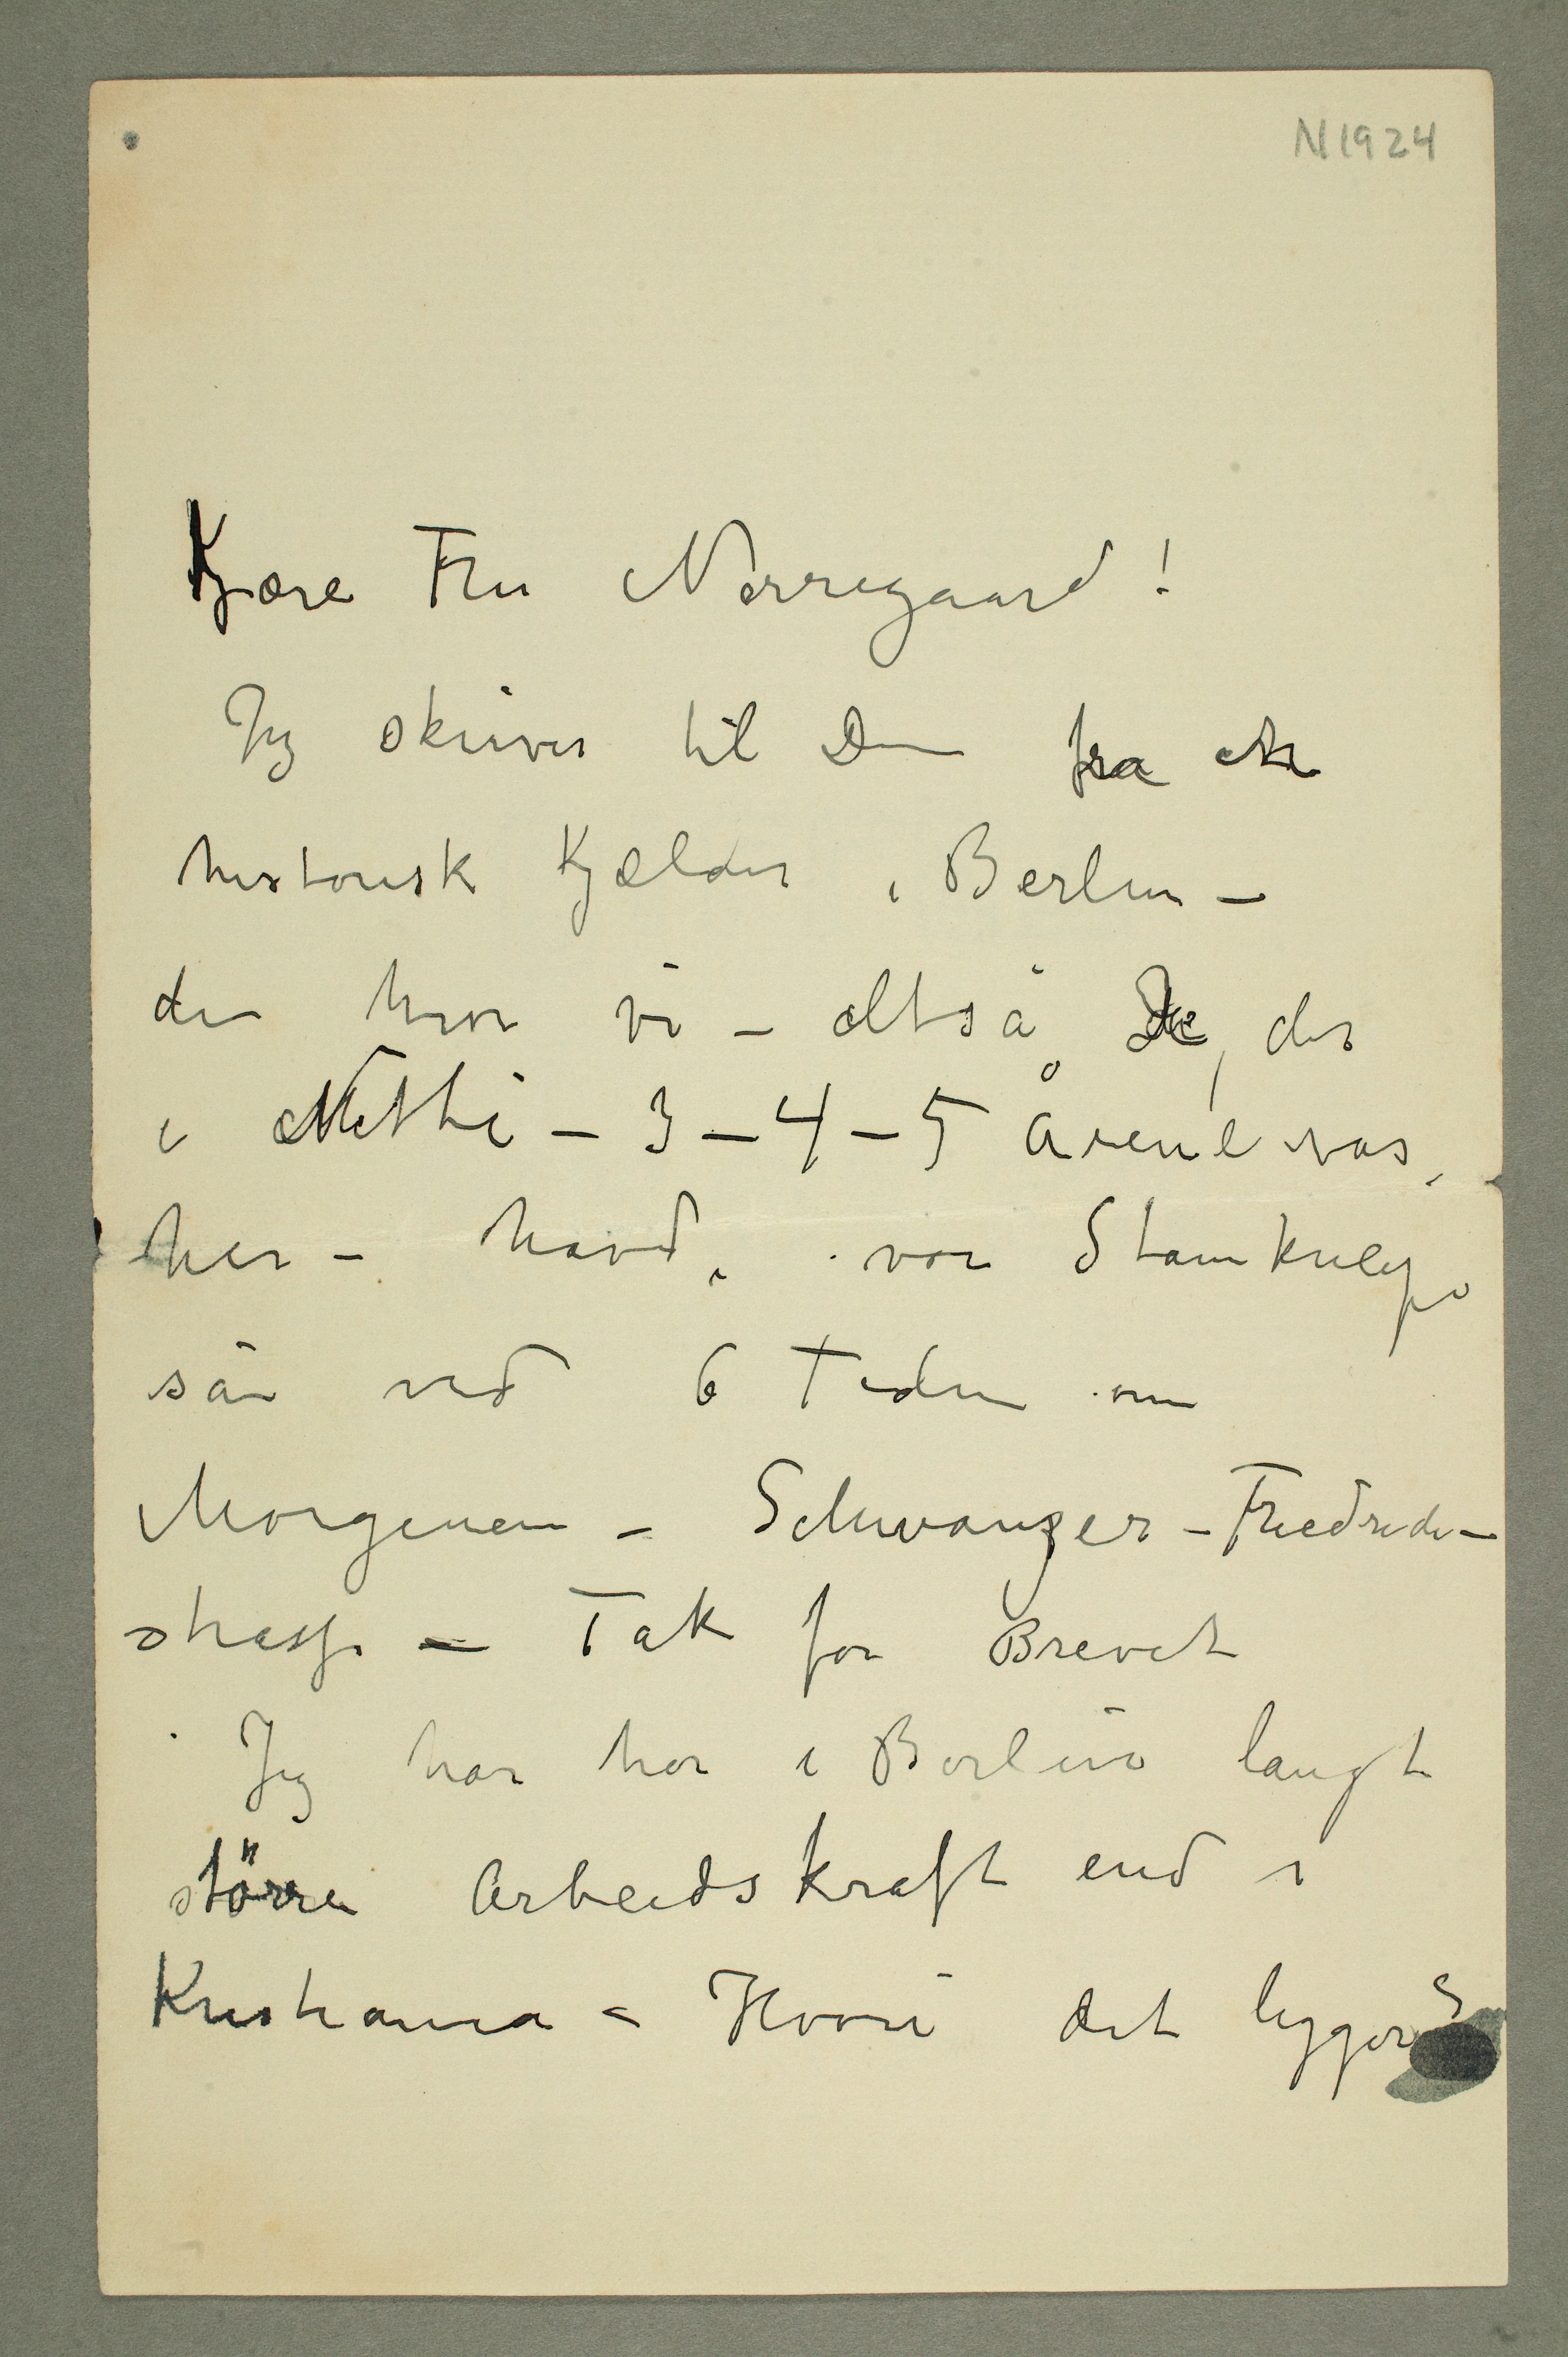 N1924
Kjære Fru Nørregaard!
Jeg skriver til Dem fra en
historisk Kjælder i Berlin –
den hvor vi – altså De, der
i Nitti – 3 – 4 – 5 Årene var
her – havde vor Stamkneipe
sån ved 6 Tiden om
Morgenen – Schwanzer – Friedrich-
strasse – Tak for Brevet
Jeg har her i Berlin langt
större Arbeidskraft end i
Kristiania – Hvori det ligger?